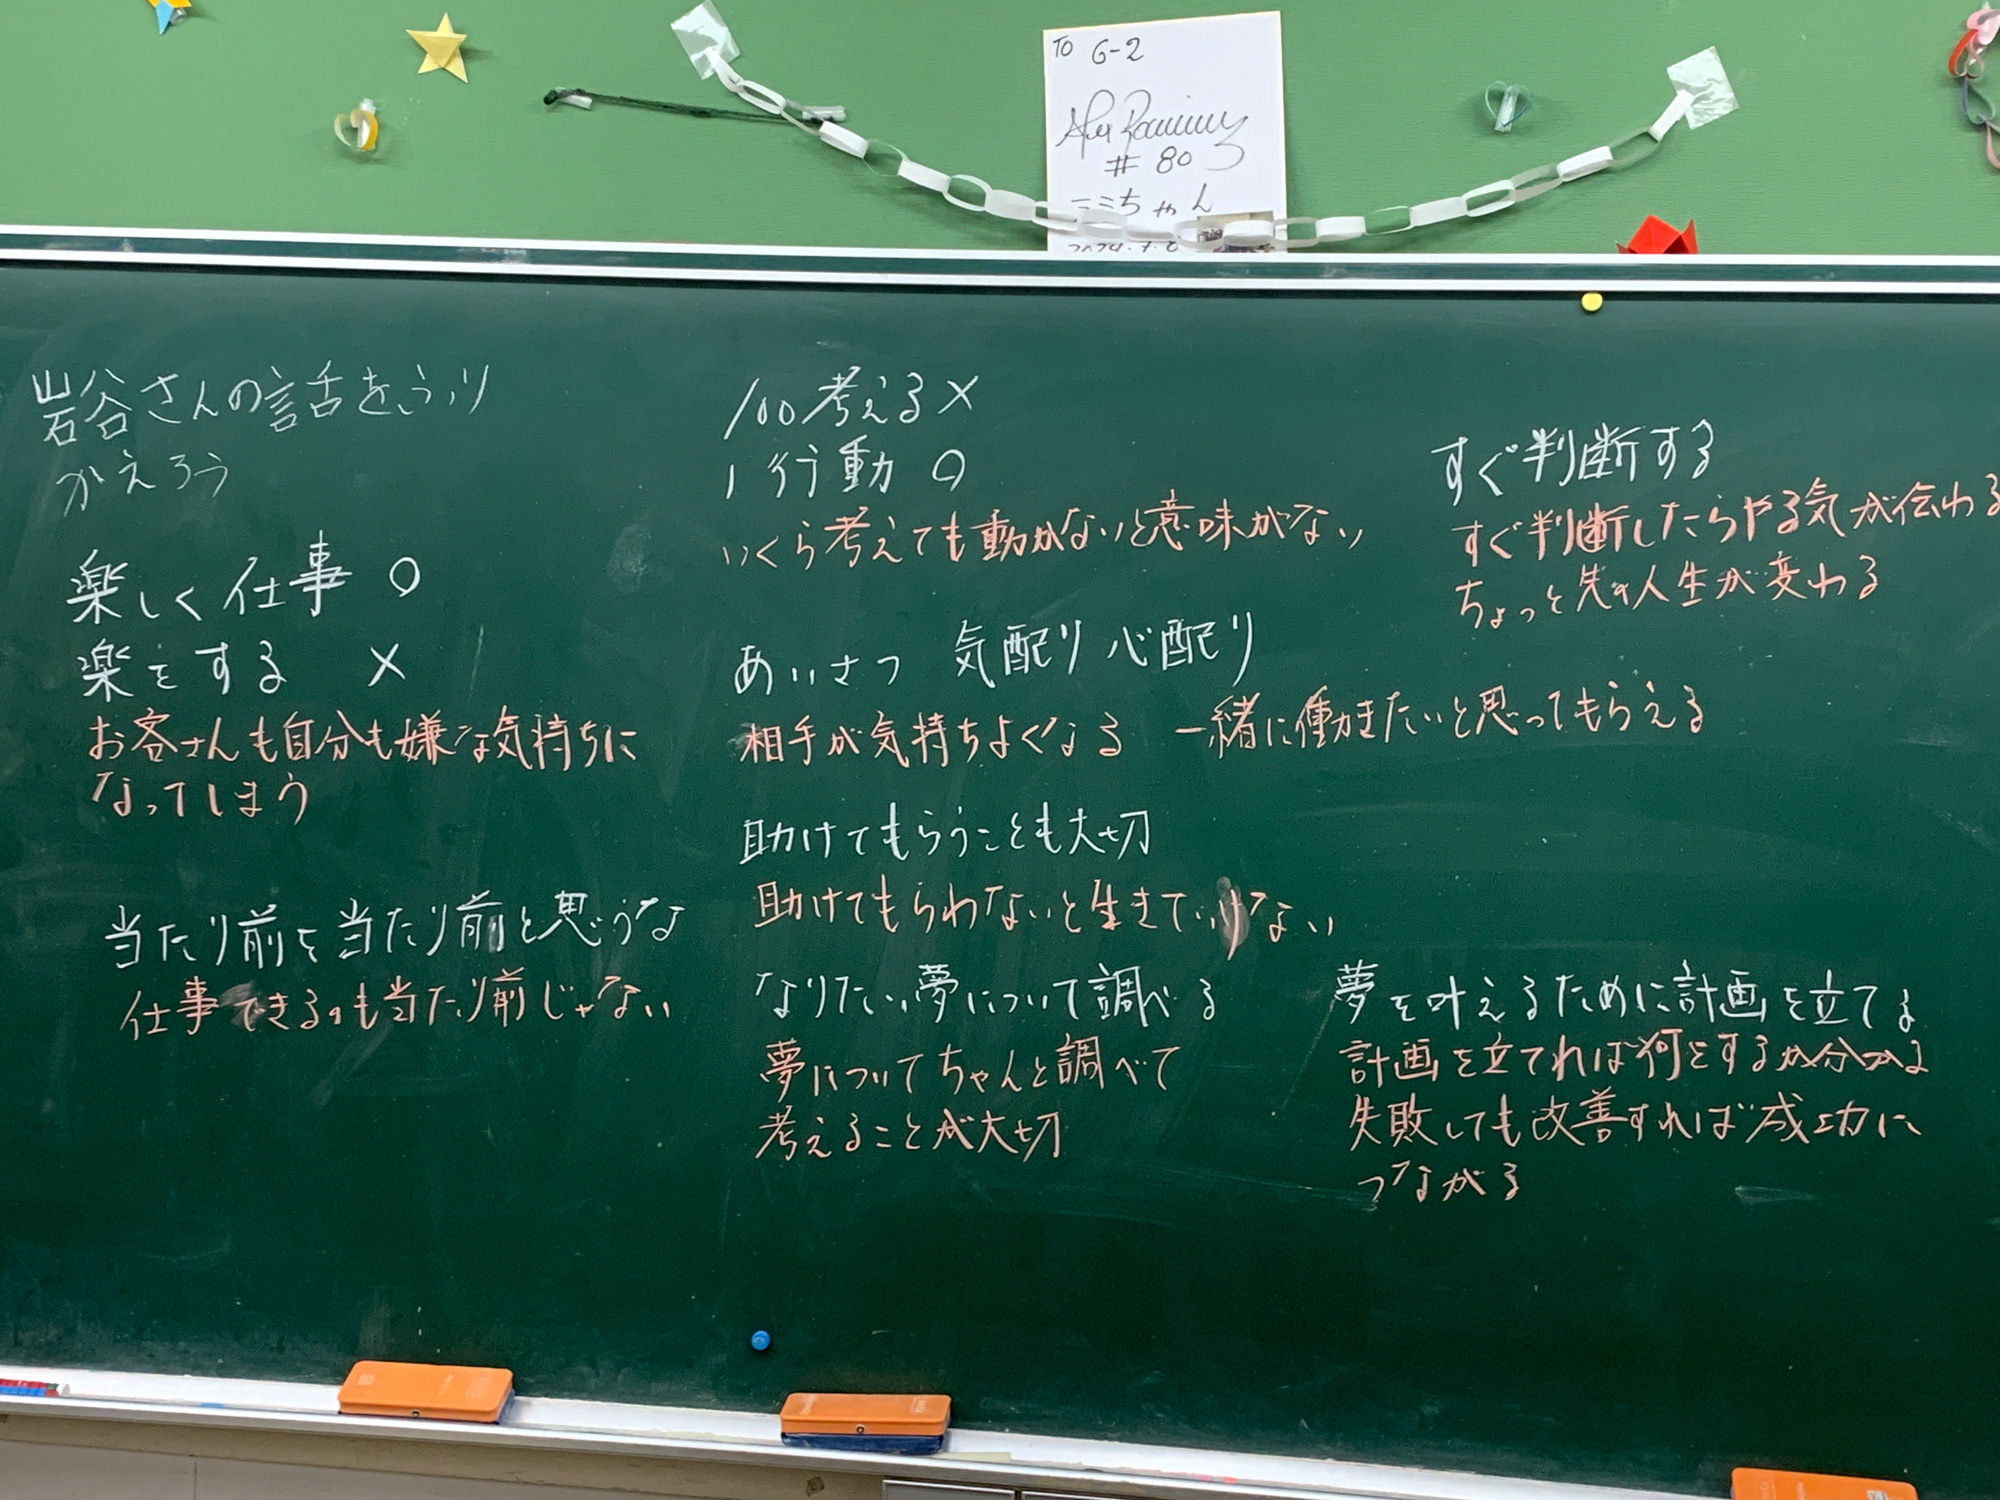 TO 6-2
Alex Ramirez
# 80
ミミちゃん
岩谷さんの話をふり
かえろう
楽しく仕事 ○
楽をする ×
お客さんも自分も嫌な気持ちに
なってしまう
当たり前を当たり前と思うな
仕事できるのも当たり前じゃない
100考える×
1行動 ○
いくら考えても動かないと意味がない
あいさつ 気配り 心配り
相手が気持ちよくなる 一緒に働きたいと思ってもらえる
助けてもらうことも大切
助けてもらわないと生きていけない
なりたい夢について調べる
夢についてちゃんと調べて
考えることが大切
すぐ判断する
すぐ判断したらやる気が伝わる
ちょっと先の人生が変わる
夢を叶えるために計画を立てる
計画を立てれば何をするか分かる
失敗しても改善すれば成功に
つながる